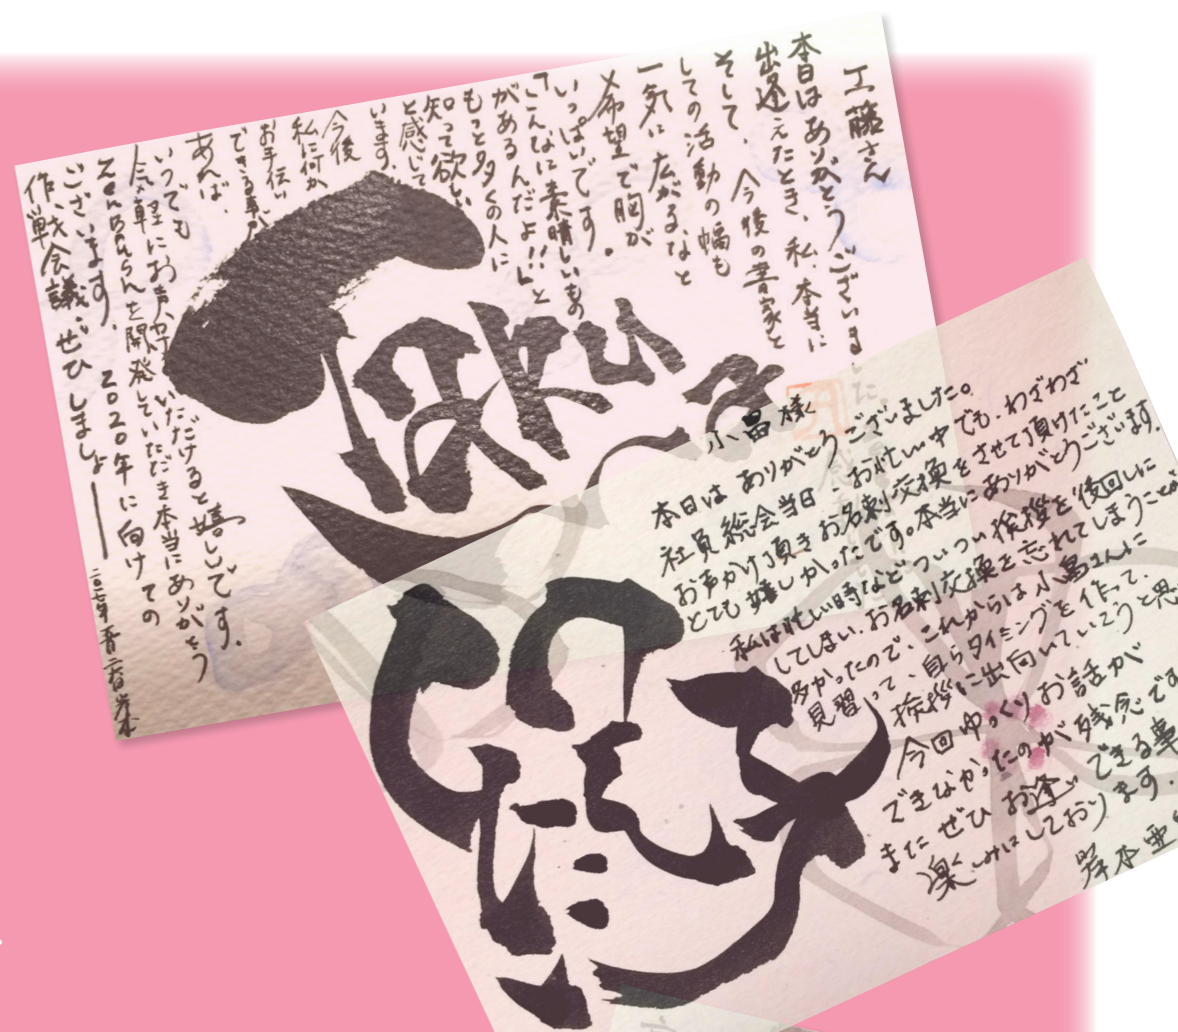 工藤さん
本日はありがとうございました。
出逢えたとき、私、本当に
そして、今後の書家と
しての活動の幅も
一気に広がるなと
希望で胸が
いっぱいです。
「こんなに素晴しいもの
があるんだよ!!」と
もっと多くの人に
知って欲しい
と感じて
います。
今後
私に何か
お手伝い
できる事が
あれば、
いつでも
気軽にお声かけいただけると嬉しいです。
を開発していただき本当にありがとう
ございます。2020年に向けての
作戦会議、ぜひしましょ――
小畠様
本日はありがとうございました。
社員総会当日、お忙しい中でも、わざわざ
お声かけ頂きお名刺交換をさせて頂けたこと
とても嬉しかったです。本当にありがとうございます。
私は忙しい時などついつい挨拶を後回しに
してしまい、お名刺交換を忘れてしまうことが
多かったので、これからは小畠さんに
見習って、自らタイミングを作って、
挨拶に出向いていこうと思
今回ゆっくりお話が
できなかったのが残念です
またぜひお逢いできる事
楽しみにしております。
岸本亜